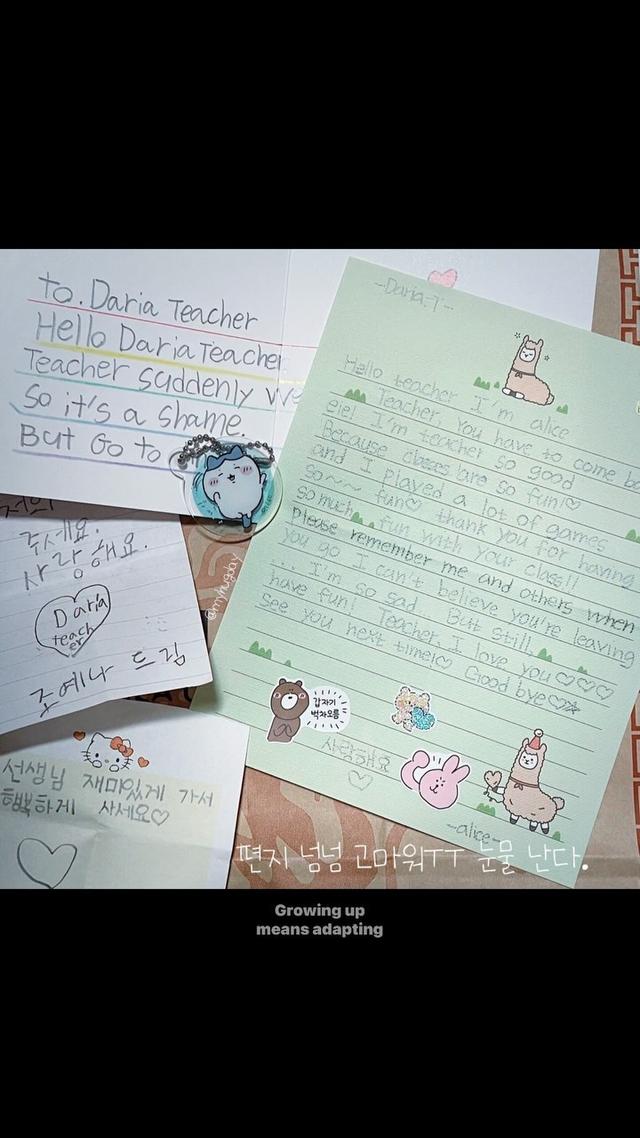 to. Daria Teacher
Hello Daria Teacher
Teacher suddenly we
So it's a shame.
But Go to
주세요.
사랑해요.
Daria
teach
er
조에나 드림
선생님 재미있게 가서
행복하게 사세요♡
-Daria.T-
Hello teacher I'm alice
Teacher, you have to come b
eie! I'm teacher so good
Because classes are so fun!♡
and I played a lot of games
so~~ fun♡ thank you for having
so much fun with your class!!
please remember me and others when
you go I can't believe you're leaving
... I'm so sad. But still,
have fun! Teacher, I love you♡♡♡
see you next time!♡ Good bye♡☆
갑자기
벅차오름
사랑해요
-alice-
@myhugday
편지 넘넘 고마워ㅠㅠ 눈물 난다.
Growing up
means adapting